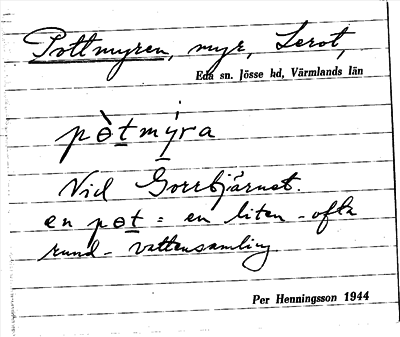 Pottmyren, myr, Lerot,
Eda sn. Jösse hd, Värmlands län
pɵ̀tmýra
Vid Gorrtjärnet.
en pɵt = en liten - ofta
rund - vattensamling
Per Henningsson 1944